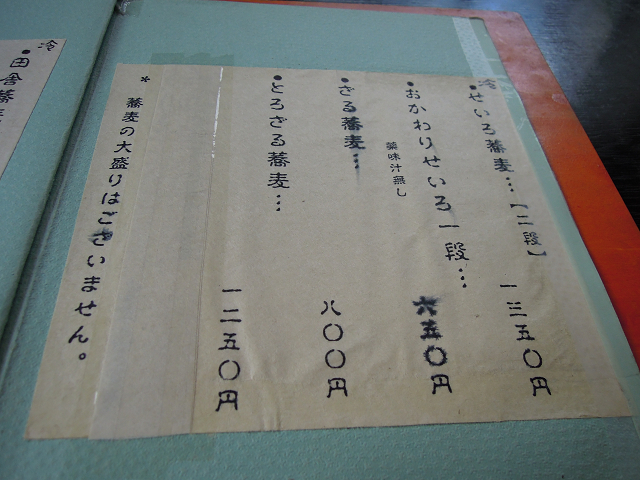 冷
・せいろ蕎麦…【二段】 一三五〇円
・おかわりせいろ一段… 六五〇円
薬味汁無し
・ざる蕎麦… 八〇〇円
・とろざる蕎麦… 一二五〇円
* 蕎麦の大盛りはございません。
冷
・田舎蕎